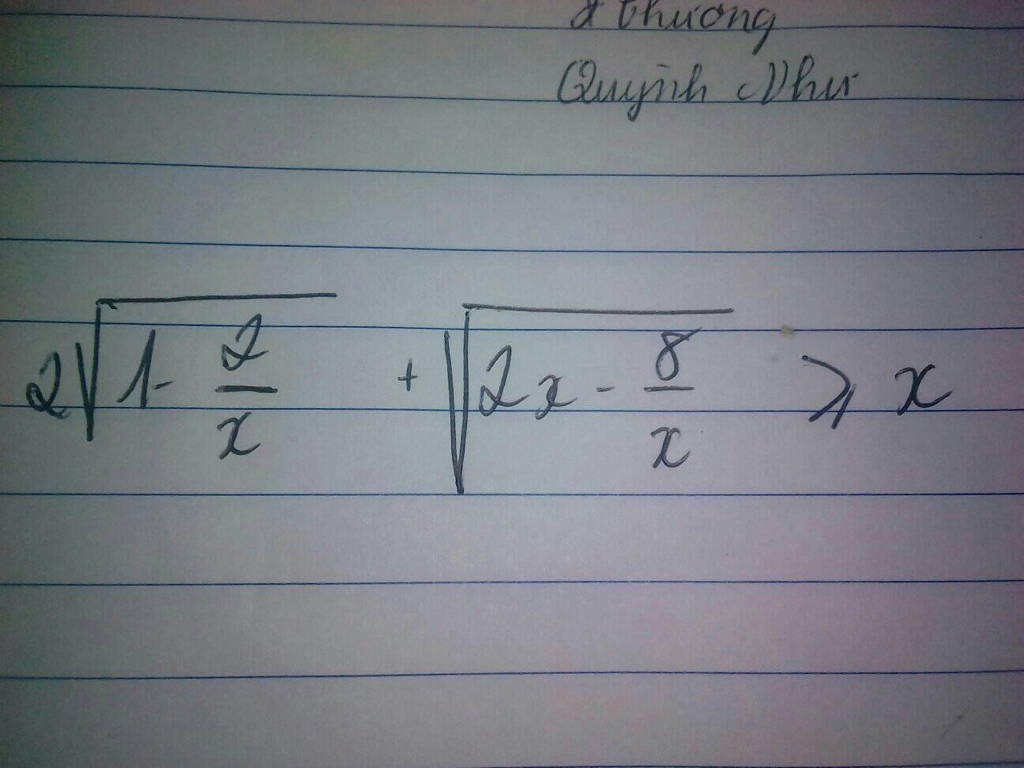 thương
Quỳnh Như
2√(1 - 2/x) + √(2x - 8/x) ⩾ x